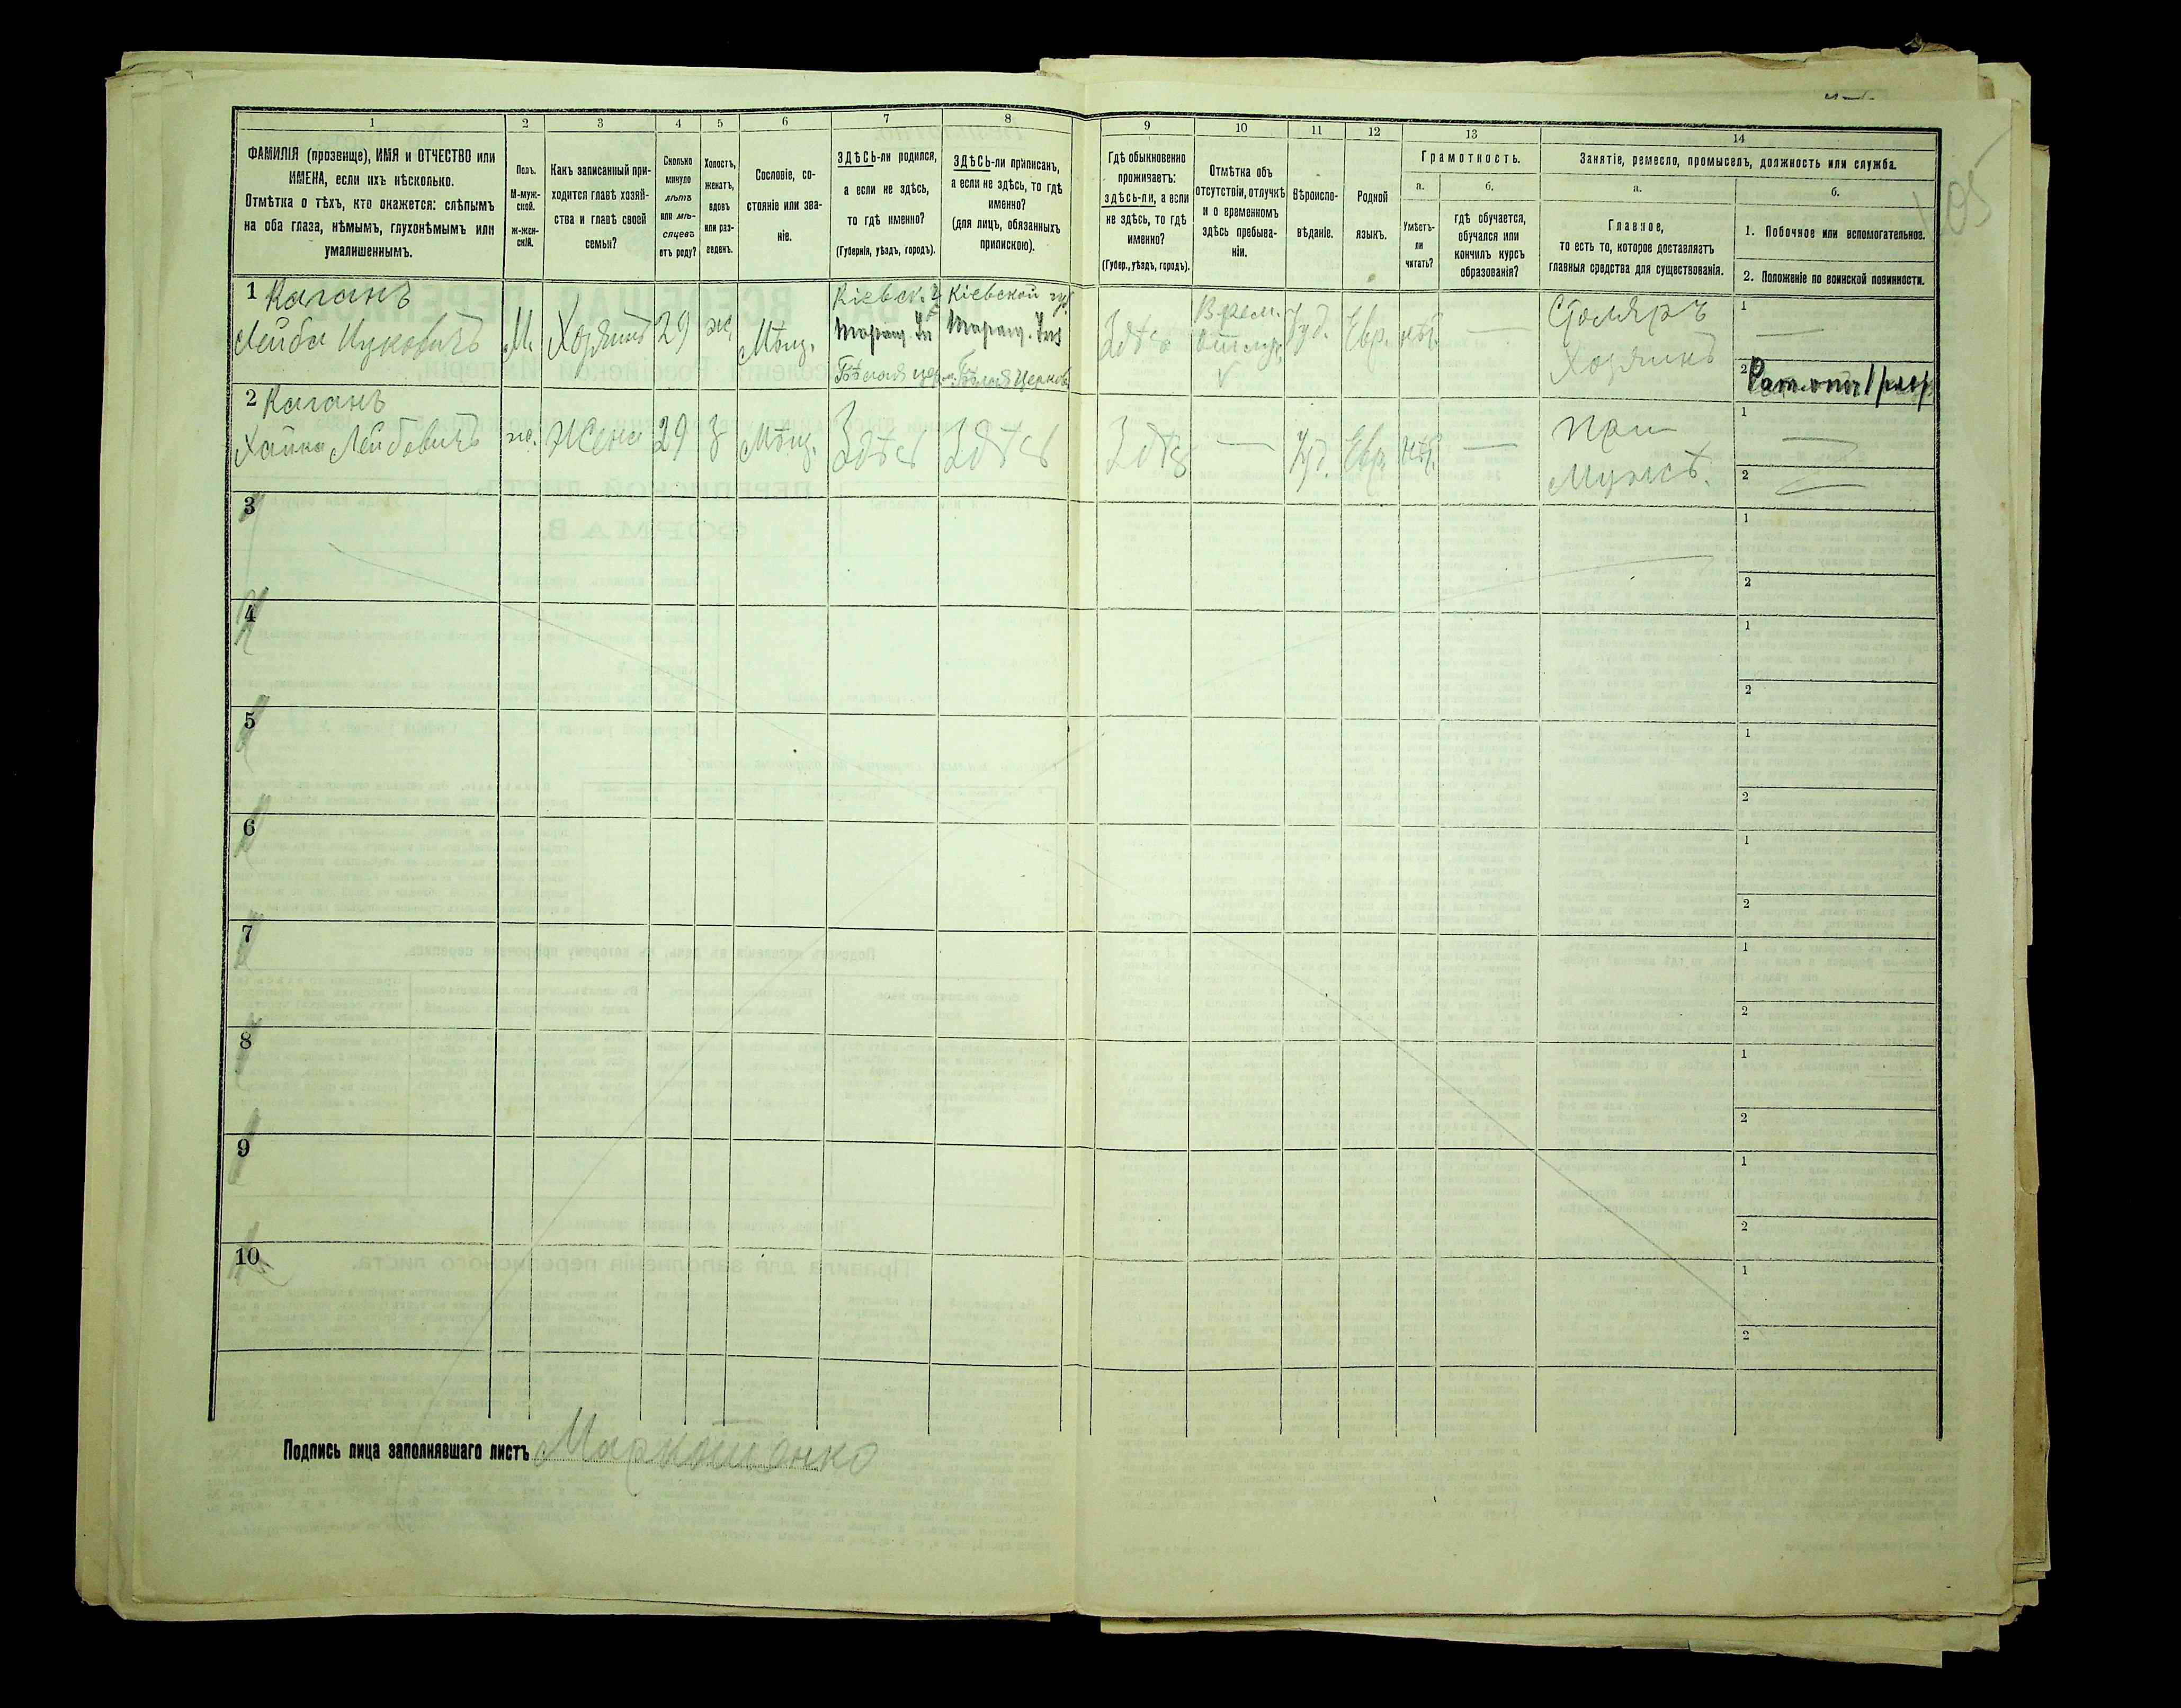 105
1
2
3
4
5
6
7
8
9
10
11
12
13
14
ФАМИЛІЯ (прозвище), ИМЯ и ОТЧЕСТВО или
ИМЕНА, если ихъ нѣсколько.
Отмѣтка о тѣхъ, кто окажется: слѣпымъ
на оба глаза, нѣмымъ, глухонѣмымъ или
умалишеннымъ.
Полъ.
М-муж-
ской.
ж-жен-
скій.
Какъ записанный при-
ходится главѣ хозяй-
ства и главѣ своей
семьи?
Сколько
минуло
лѣтъ
или мѣ-
сяцевъ
отъ роду?
Холостъ,
женатъ,
вдовъ
или раз-
веденъ.
Сословіе, со-
стояніе или зва-
ніе.
ЗДѢСЬ-ли родился,
а если не здѣсь,
то гдѣ именно?
(Губернія, уѣздъ, городъ).
ЗДѢСЬ-ли приписанъ,
а если не здѣсь, то гдѣ
именно?
(для лицъ, обязанныхъ
припискою).
Гдѣ обыкновенно
проживаетъ:
здѣсь-ли, а если
не здѣсь, то гдѣ
именно?
(Губер., уѣздъ, городъ).
Отмѣтка объ
отсутствіи, отлучкѣ
и о временномъ
здѣсь пребыва-
ніи.
Вѣроиспо-
вѣданіе.
Родной
языкъ.
Грамотность.
а.
Умѣетъ-
ли
читать?
б.
гдѣ обучается,
обучался или
кончилъ курсъ
образованія?
Занятіе, ремесло, промыселъ, должность или служба.
а.
Главное,
то есть то, которое доставляетъ
главныя средства для существованія.
б.
1. Побочное или вспомогательное.
2. Положеніе по воинской повинности.
1 Каганъ
Лейба Ицковичъ
М.
Хозяинъ
29
ж
Мѣщ.
Кіевск. г
Таращ.
Бѣлая цер
Кіевской губ
Таращ.
Бѣлая Церковь
Здѣсь
Врем.
отлуч.
Іуд.
Евр.
нѣт.
—
Столяръ
Хозяинъ
1 —
2
2 Каганъ
Хайка Лейбовичъ
ж.
Жена
29
З
Мѣщ.
Здѣсь
Здѣсь
Здѣсь
—
Іуд.
Евр.
Нѣт.
—
При
Мужѣ.
1 —
2 —
3
1
2
4
1
2
5
1
2
6
1
2
7
1
2
8
1
2
9
1
2
10
1
2
Подпись лица заполнявшаго листъ